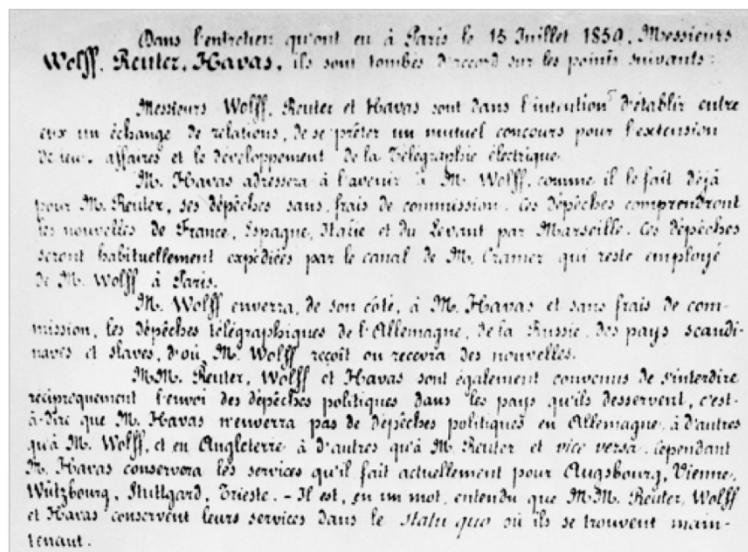 Dans l'entretien qu'ont eu à Paris le 15 Juillet 1859, Messieurs
Wolff, Reuter, Havas, ils sont tombés d'accord sur les points suivants:
Messieurs Wolff, Reuter et Havas sont dans l'intention d'établir entre
eux un échange de relations, de se prêter un mutuel concours pour l'extension
de leurs affaires et le développement de la Télégraphie électrique.
M. Havas adressera à l'avenir à M. Wolff, comme il le fait déjà
pour M. Reuter, ses dépêches sans frais de commission. Ces dépêches comprendront
les nouvelles de France, Espagne, Italie et du Levant par Marseille. Ces dépêches
seront habituellement expédiées par le canal de M. Cramer qui reste employé
de M. Wolff à Paris.
M. Wolff enverra, de son côté, à M. Havas et sans frais de com-
mission, les dépêches télégraphiques de l'Allemagne, de la Russie, des pays scandi-
naves et slaves, d'où M. Wolff reçoit ou recevra des nouvelles.
MM. Reuter, Wolff et Havas sont également convenus de s'interdire
réciproquement l'envoi des dépêches politiques dans les pays qu'ils desservent, c'est-
à-dire que M. Havas n'enverra pas de dépêches politiques en Allemagne à d'autres
qu'à M. Wolff, et en Angleterre à d'autres qu'à M. Reuter et vice versa. Cependant
M. Havas conservera les services qu'il fait actuellement pour Augsbourg, Vienne,
Wutzbourg, Stuttgard, Trieste. - Il est, en un mot, entendu que M.M. Reuter, Wolff
et Havas conservent leurs services dans le statu quo où ils se trouvent main-
tenant.